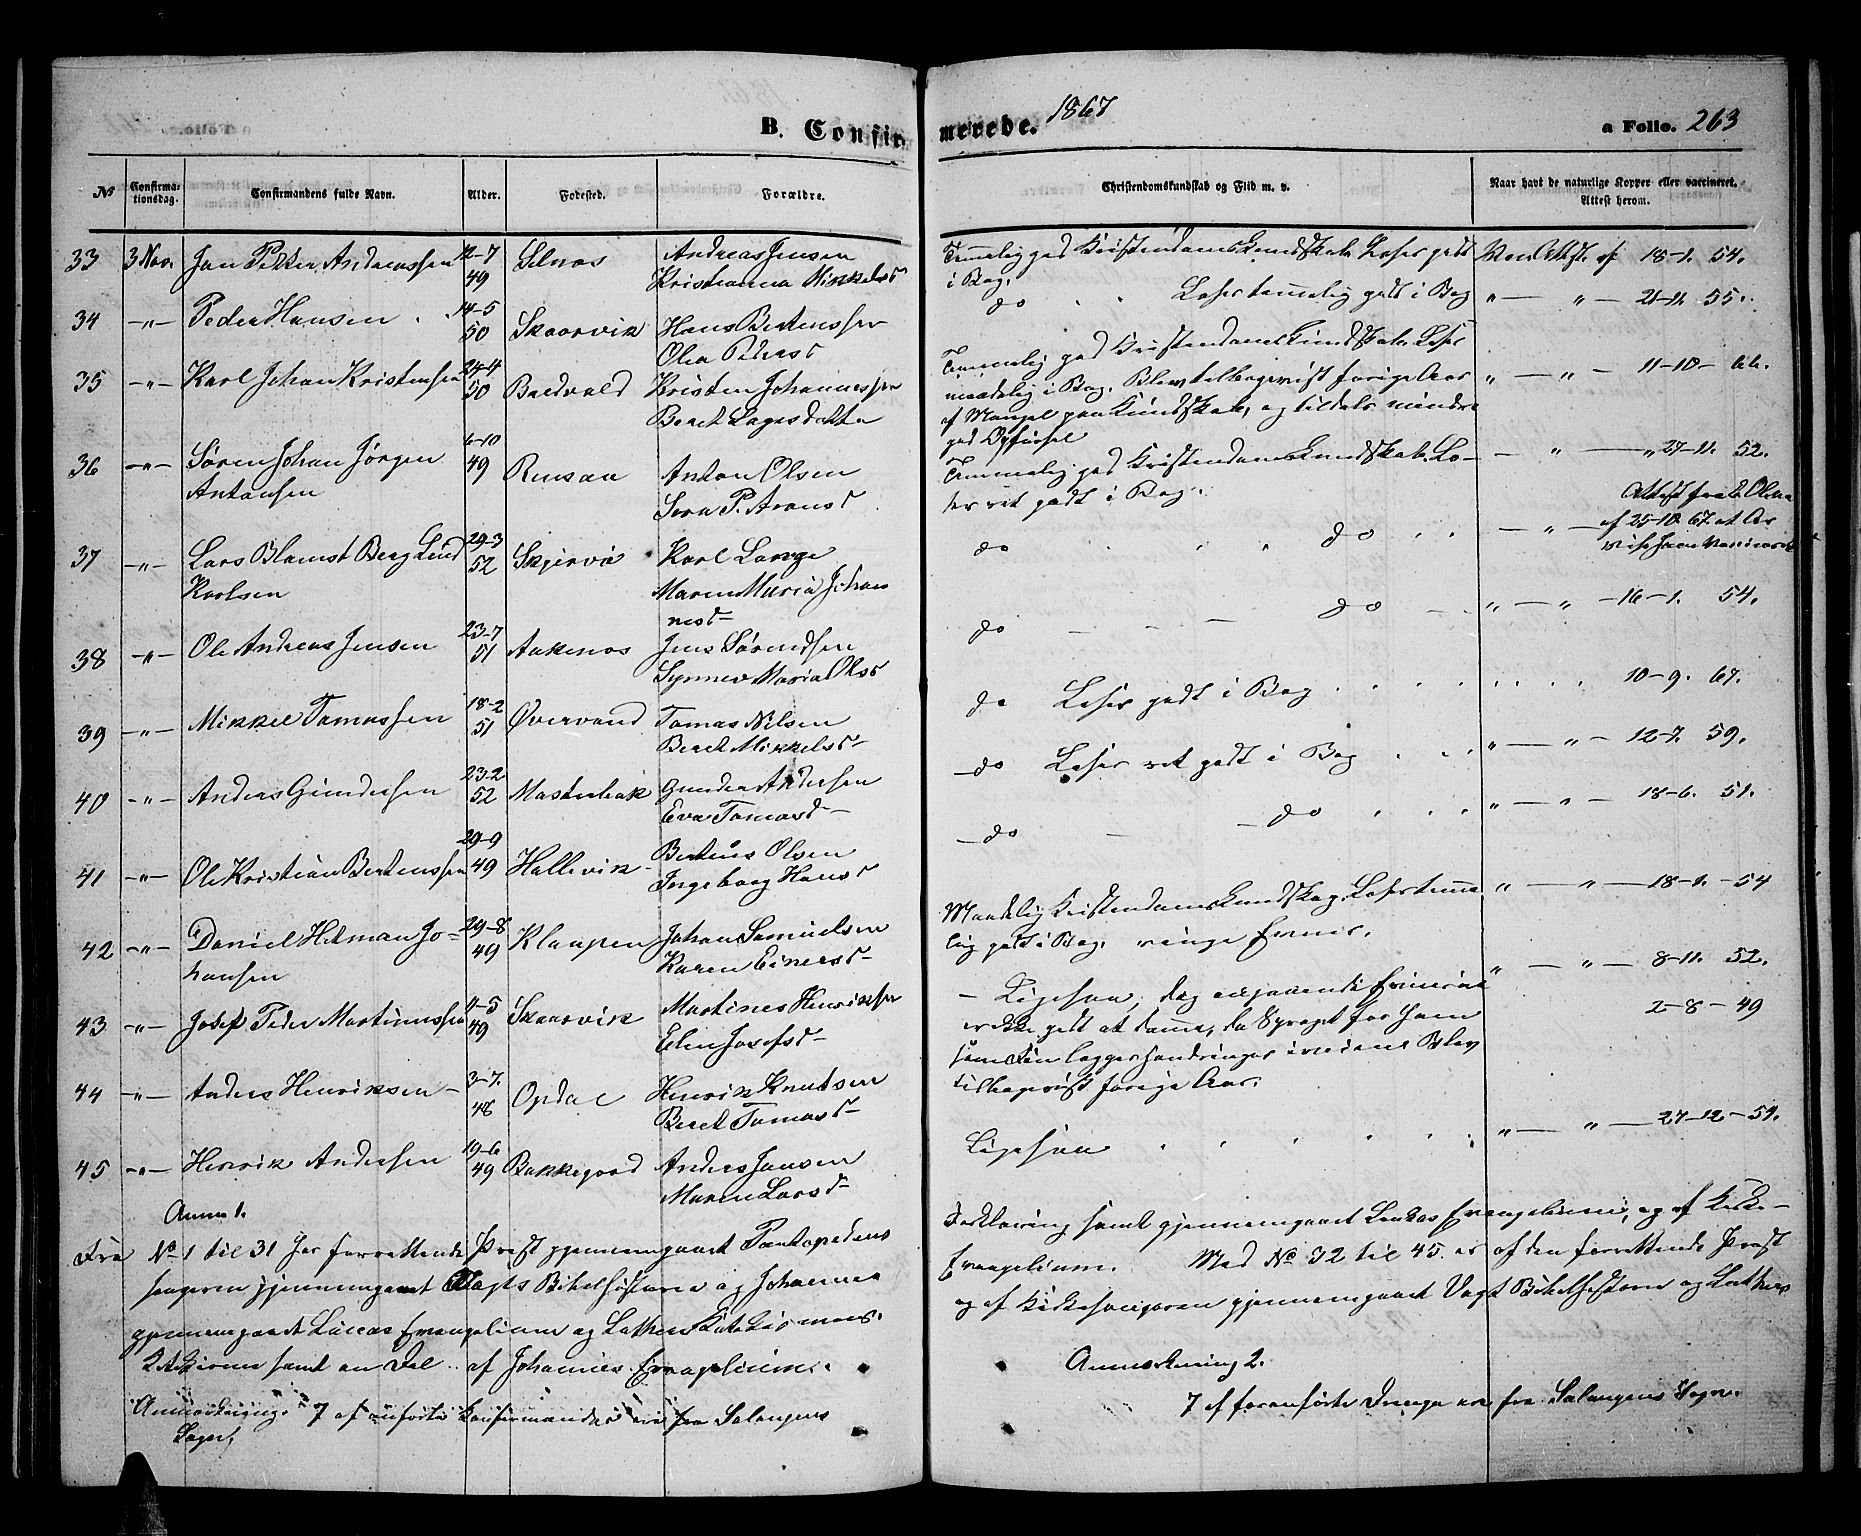 B. Confirmerede. 1867
a Folio. 263
No Confirmationsdag. Confirmandens fulde Navn. Alder. Fødested. Forældre. Christendomskundskab og Flid m. v. Naar havt de naturlige Kopper eller vaccineret. Attest herom.
33 3 Nov. Jan Petter Andreassen 12-7 49 Elnos Andreas Jensen
Kristianna Mikkelsd
Temmelig god Kristendomskundskab. Læser godt i Bog. 18-1. 54.
34 -"- Peder Hansen 14-5 50 Skaarvik Hans Bertenssen
Olea Pedersd
do Læser temmelig godt i Bog " — " — 21-11. 55.
35 -"- Karl Johan Kristensen 24-4 50 Kristen Johannessen
Beret Lagesdatter
Temmelig god Kristendomskundskab. Læser
maadelig i Bog. Blev tilbagevist forige Aar
af Mangel paa Kundskab, og tildels mindre
god Opførsel
" — " — 11-10- 66.
36 -"- Søren Johan Jørgen
Antonsen
6-10 49 Anton Olsen
Sera P. Aronsd
Temmelig god Kristendomskundskab. Læ-
ser ret godt i Bog.
— " — 27-11. 52.
37 -"- Lars Berg Lund
Karlsen
29-3 52 Skjervø Karl Lange
Maren Maria Johan
nesd
do do
Attest fra
af 25-10 67 at
38 -"- Ole Andreas Jensen 23-7 51 Aakenos Jens Sørendsen
Synnev Maria Olsd
do — — — do " — " — 16-1. 54.
39 -"- Mikkel Tomassen 18-2 51 Øvervand Tomas Nilsen
Beret Mikkelsd
do Læser godt i Bog 10-9. 67.
40 -"- Anders Gundersen 23-2 52 Gunder Andersen
Eva Tomasd
do Læser ret godt i Bog " — " — 12-7. 59.
41 -"- Ole Kristian Bertenssen 29-9 49 Hallevik Berteus Olsen
Ingeborg Hansd
do — do " — " — 18-6. 51.
42 -"- Daniel Hilman Jo-
hansen
29-8 49 Klaapen Johan Samuelsen
Karen Einersd
Maadelig Kristendomskundskab. Læser temme
lig godt i Bog. ringe Evner.
" — " — 18-1. - 54
43 -"- Josef Peder Martinussen 11-5 49 Skaarvik Martines Henriksen
Elen Josefsd
" — " — 8-11. 52.
44 -"- Anders Henriksen 3-7. 48 Opdal Henrik Knutsen
Beret Tomasd
Ligesaa, dog angaaende Evnerne
ikke godt at dømme, da Sproget for ham
som Fin lægger Hindringer i veiene Blev
tilbagevist forige Aar.
2-8-49
45 -"- Henrik Andersen 19-6 49 Bakkegaard Anders Jansen
Maren Larsd
Ligesaa " — " — 27-12-51.
Anm 1.
Fra No 1 til 31 har forrettende Prest gjennemgaaet Pontopedens Forklaring samt gjennemgaaet Lukas Evangelium, og af Kirke-
sangeren gjennemgaaet Vogts Bibelhistorie og Johannes Evangelium. Med No 32 til 45 er af den forrettende Prest
gjennemgaaet Lucas Evangelium og Luthers Katekismus. og af Kirkesangeren gjennemgaaet Vogt Bibelhistorie og Luthers
Katekisme samt en Del af Johannes Evangelium.
Anmærkning 2.
Anmærkning. 7 af anførte Konfirmander ere fra Salangens
Sogn.
7 af foranførte Drenge ere fra Salangens Sogn.